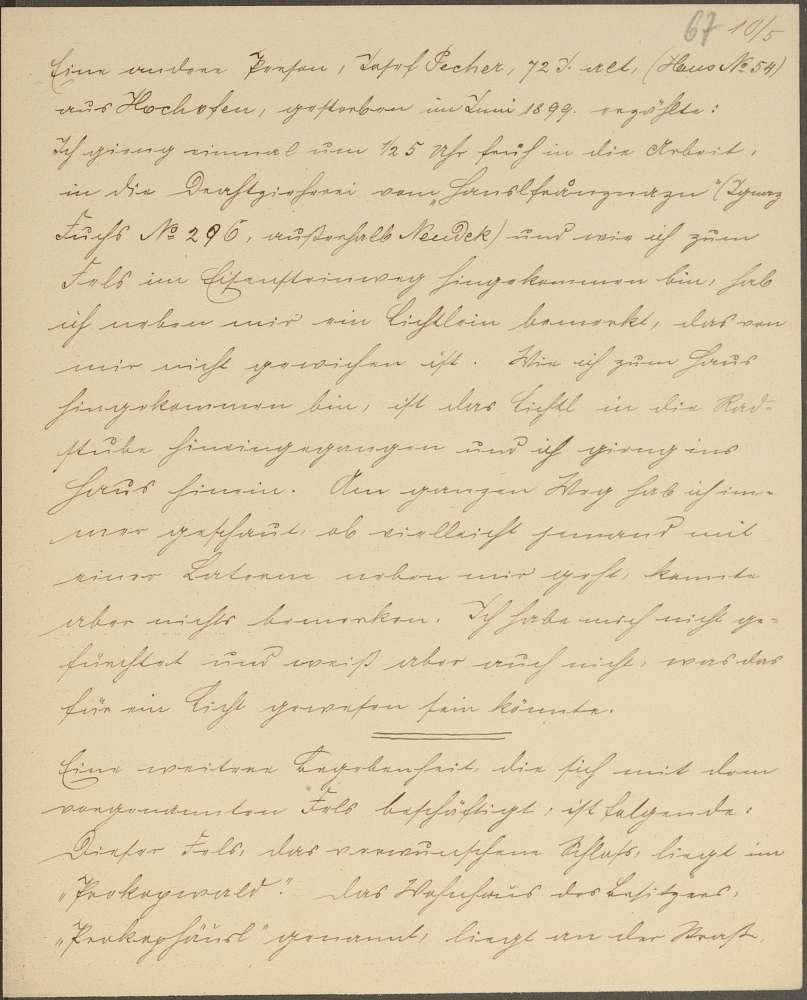 67 10/5
Eine andere Person, Josef Pecher, 72 J. alt, (Haus № 54)
aus Hochofen, gestorben im Juni 1899. erzählte:
Ich gieng einmal um ½ 5 Uhr früh in die Arbeit,
in die Drahtzieherei vom „Hanslfránznazn" (Ignaz
Fuchs № 296, außerhalb Neudek) und wie ich zum
Fels im Eisensteinweg hingekommen bin, hab
ich neben mir ein Lichtlein bemerkt, das von
mir nicht gewichen ist. Wie ich zum Haus
hingekommen bin, ist das Lichtl in die Rad-
stube hineingegangen und ich gieng ins
Haus hinein. Am ganzen Weg hab ich im-
mer geschaut, ob vielleicht jemand mit
einer Laterne neben mir geht, konnte
aber nichts bemerken. Ich habe mich nicht ge-
fürchtet und weiß aber auch nicht, was das
für ein Licht gewesen sein könnte.
Eine weitere Begebenheit, die sich mit dem
vorgenannten Fels beschäftigt, ist folgende:
Dieser Fels, das verwunschene Schloß, liegt im
„Prokopwald." Das Wohnhaus des Besitzers,
„Prokophäusl" genannt, liegt an der Straße,